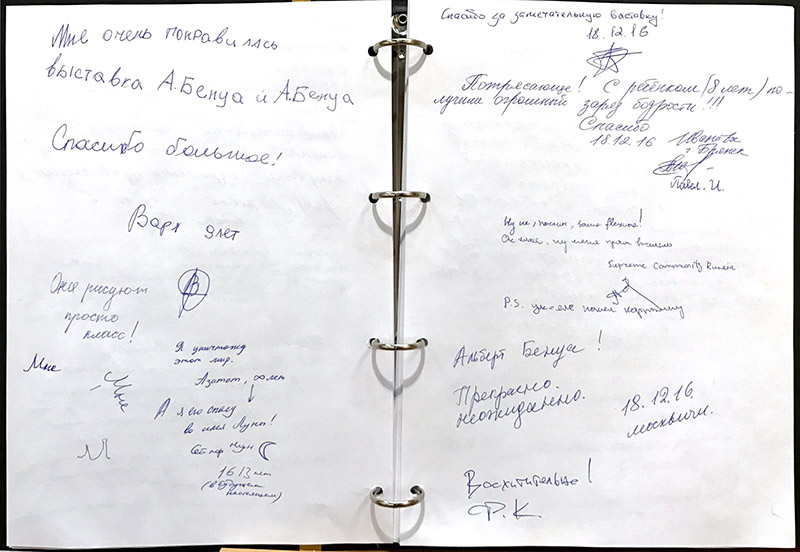 Мне очень понравилась
выставка А.Бенуа и А.Бенуа
Спасибо большое!
Варя 9 лет
Они рисуют
просто
класс!
В
Мне
Мне
М
Я уничтожу
этот мир.
Азатот, ∞ лет
А я его спасу
во имя Луны!
Сейлор Мун
16 13 лет
(в будущем
настоящем)
Спасибо за замечательную выставку!
18.12.16
Потрясающе! С ребёнком (8 лет) по-
лучили огромный заряд бодрости!!!
Спасибо
18.12.16 Иванова
г. Брянск
Павл. И.
Ну не,
меня прям
Supreme Community Russia
P.S. картошку
Альберт Бенуа!
Прекрасно.
неожиданно.
18.12.16.
москвичи.
Восхитительно!
Р.К.